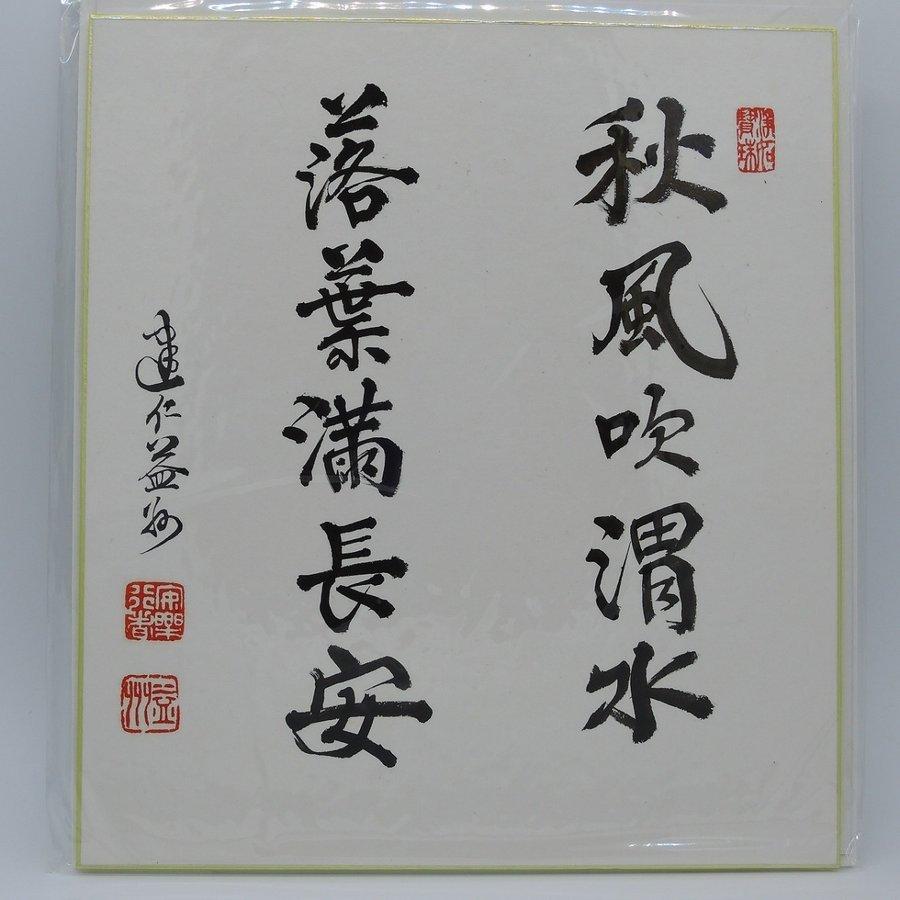 秋風吹渭水
落葉満長安
建仁益州